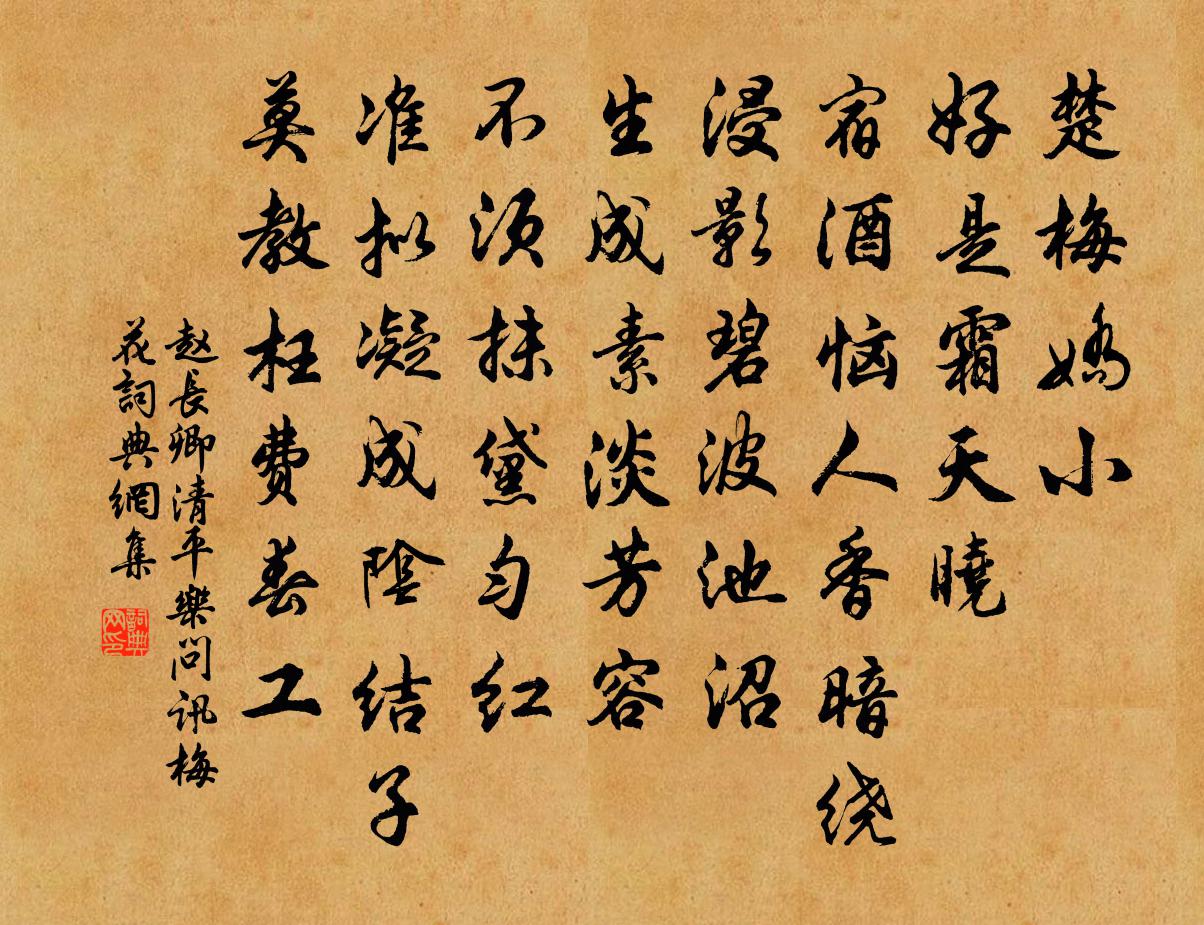 楚梅娇小
好是霜天晓
宿酒恼人香暗绕
浸影碧波池沼
生成素淡芳容
不须抹黛匀红
准拟凝成阴结子
莫教枉费春工
赵長卿清平樂問訊梅
花詞典網集
詞典
网印